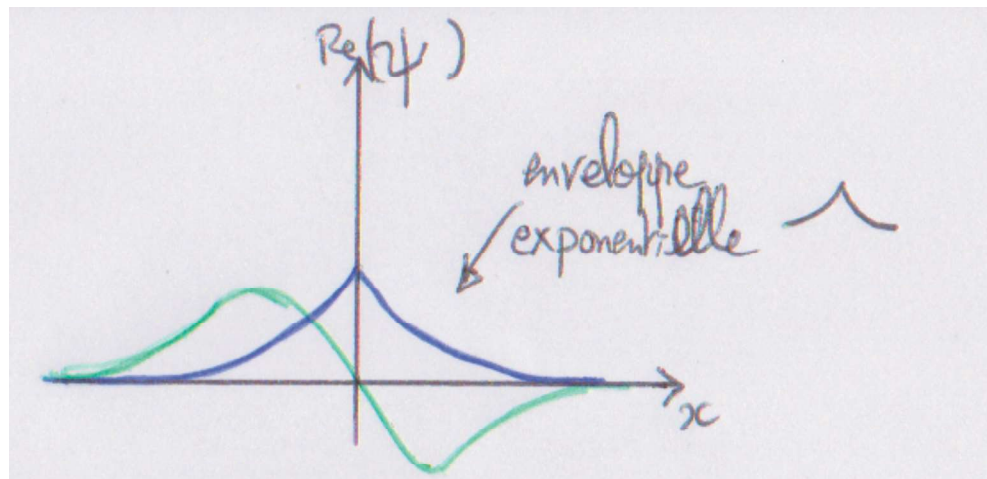 Re(ψ)
enveloppe
exponentielle
x